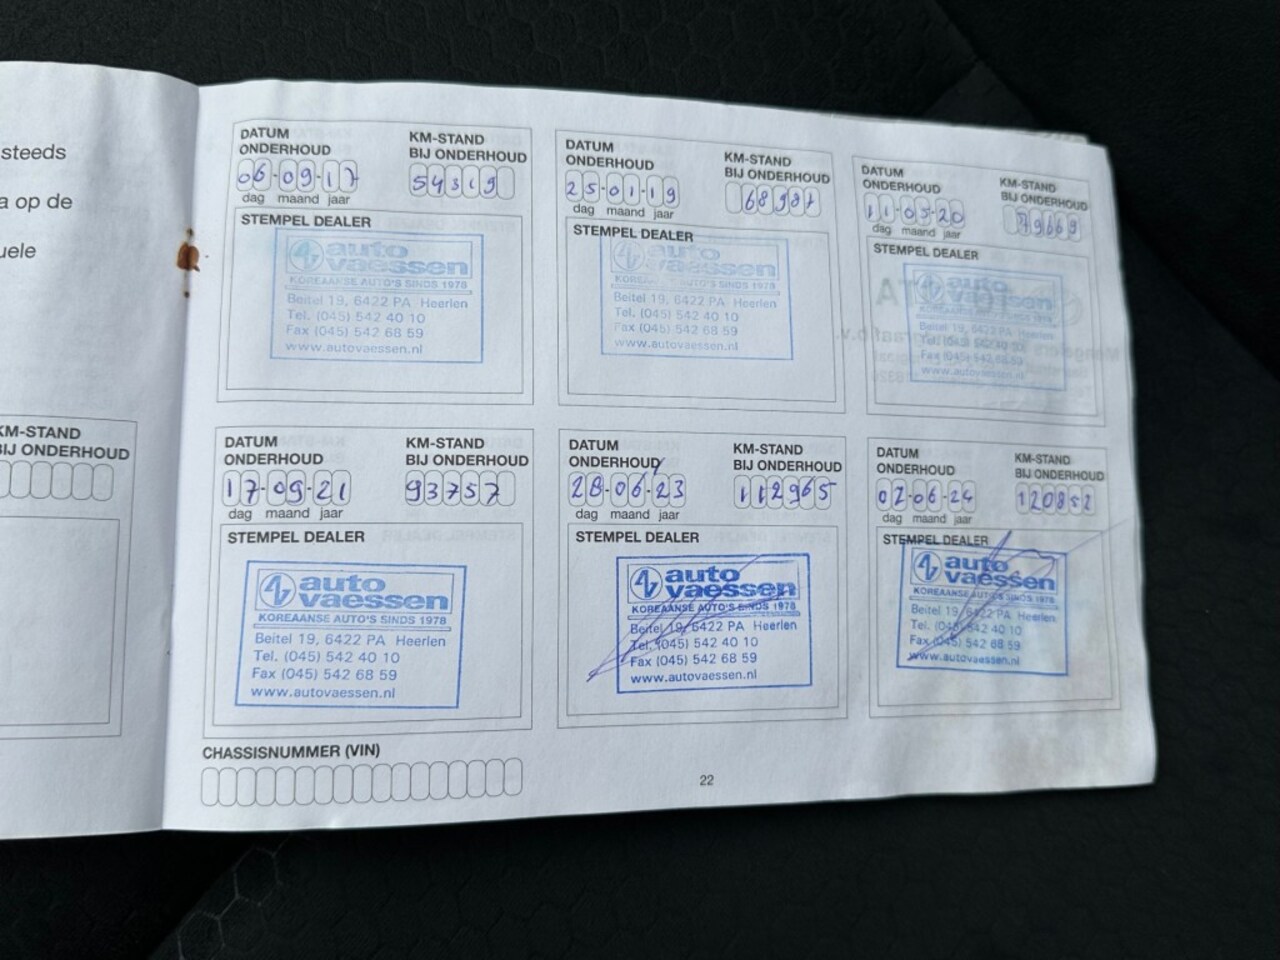 steeds
a op de
uele
KM-STAND
BIJ ONDERHOUD
DATUM
ONDERHOUD
KM-STAND
BIJ ONDERHOUD
06-09-17
54319
dag maand jaar
STEMPEL DEALER
auto
vaessen
KOREAANSE AUTO'S SINDS 1978
Beitel 19, 6422 PA Heerlen
Tel. (045) 542 40 10
Fax (045) 542 68 59
www.autovaessen.nl
DATUM
ONDERHOUD
KM-STAND
BIJ ONDERHOUD
25-01-19
68987
dag maand jaar
STEMPEL DEALER
auto
vaessen
KOREAANSE AUTO'S SINDS 1978
Beitel 19, 6422 PA Heerlen
Tel. (045) 542 40 10
Fax (045) 542 68 59
www.autovaessen.nl
DATUM
ONDERHOUD
KM-STAND
BIJ ONDERHOUD
11-05-20
79669
dag maand jaar
STEMPEL DEALER
auto
vaessen
KOREAANSE AUTO'S SINDS 1978
Beitel 19, 6422 PA Heerlen
Tel. (045) 542 40 10
Fax (045) 542 68 59
www.autovaessen.nl
DATUM
ONDERHOUD
KM-STAND
BIJ ONDERHOUD
17-09-21
93757
dag maand jaar
STEMPEL DEALER
auto
vaessen
KOREAANSE AUTO'S SINDS 1978
Beitel 19, 6422 PA Heerlen
Tel. (045) 542 40 10
Fax (045) 542 68 59
www.autovaessen.nl
DATUM
ONDERHOUD
KM-STAND
BIJ ONDERHOUD
28-06-23
112965
dag maand jaar
STEMPEL DEALER
auto
vaessen
KOREAANSE AUTO'S SINDS 1978
Beitel 19, 6422 PA Heerlen
Tel. (045) 542 40 10
Fax (045) 542 68 59
www.autovaessen.nl
DATUM
ONDERHOUD
KM-STAND
BIJ ONDERHOUD
02-06-24
120852
dag maand jaar
STEMPEL DEALER
auto
vaessen
KOREAANSE AUTO'S SINDS 1978
Beitel 19, 6422 PA Heerlen
Tel. (045) 542 40 10
Fax (045) 542 68 59
www.autovaessen.nl
CHASSISNUMMER (VIN)
22